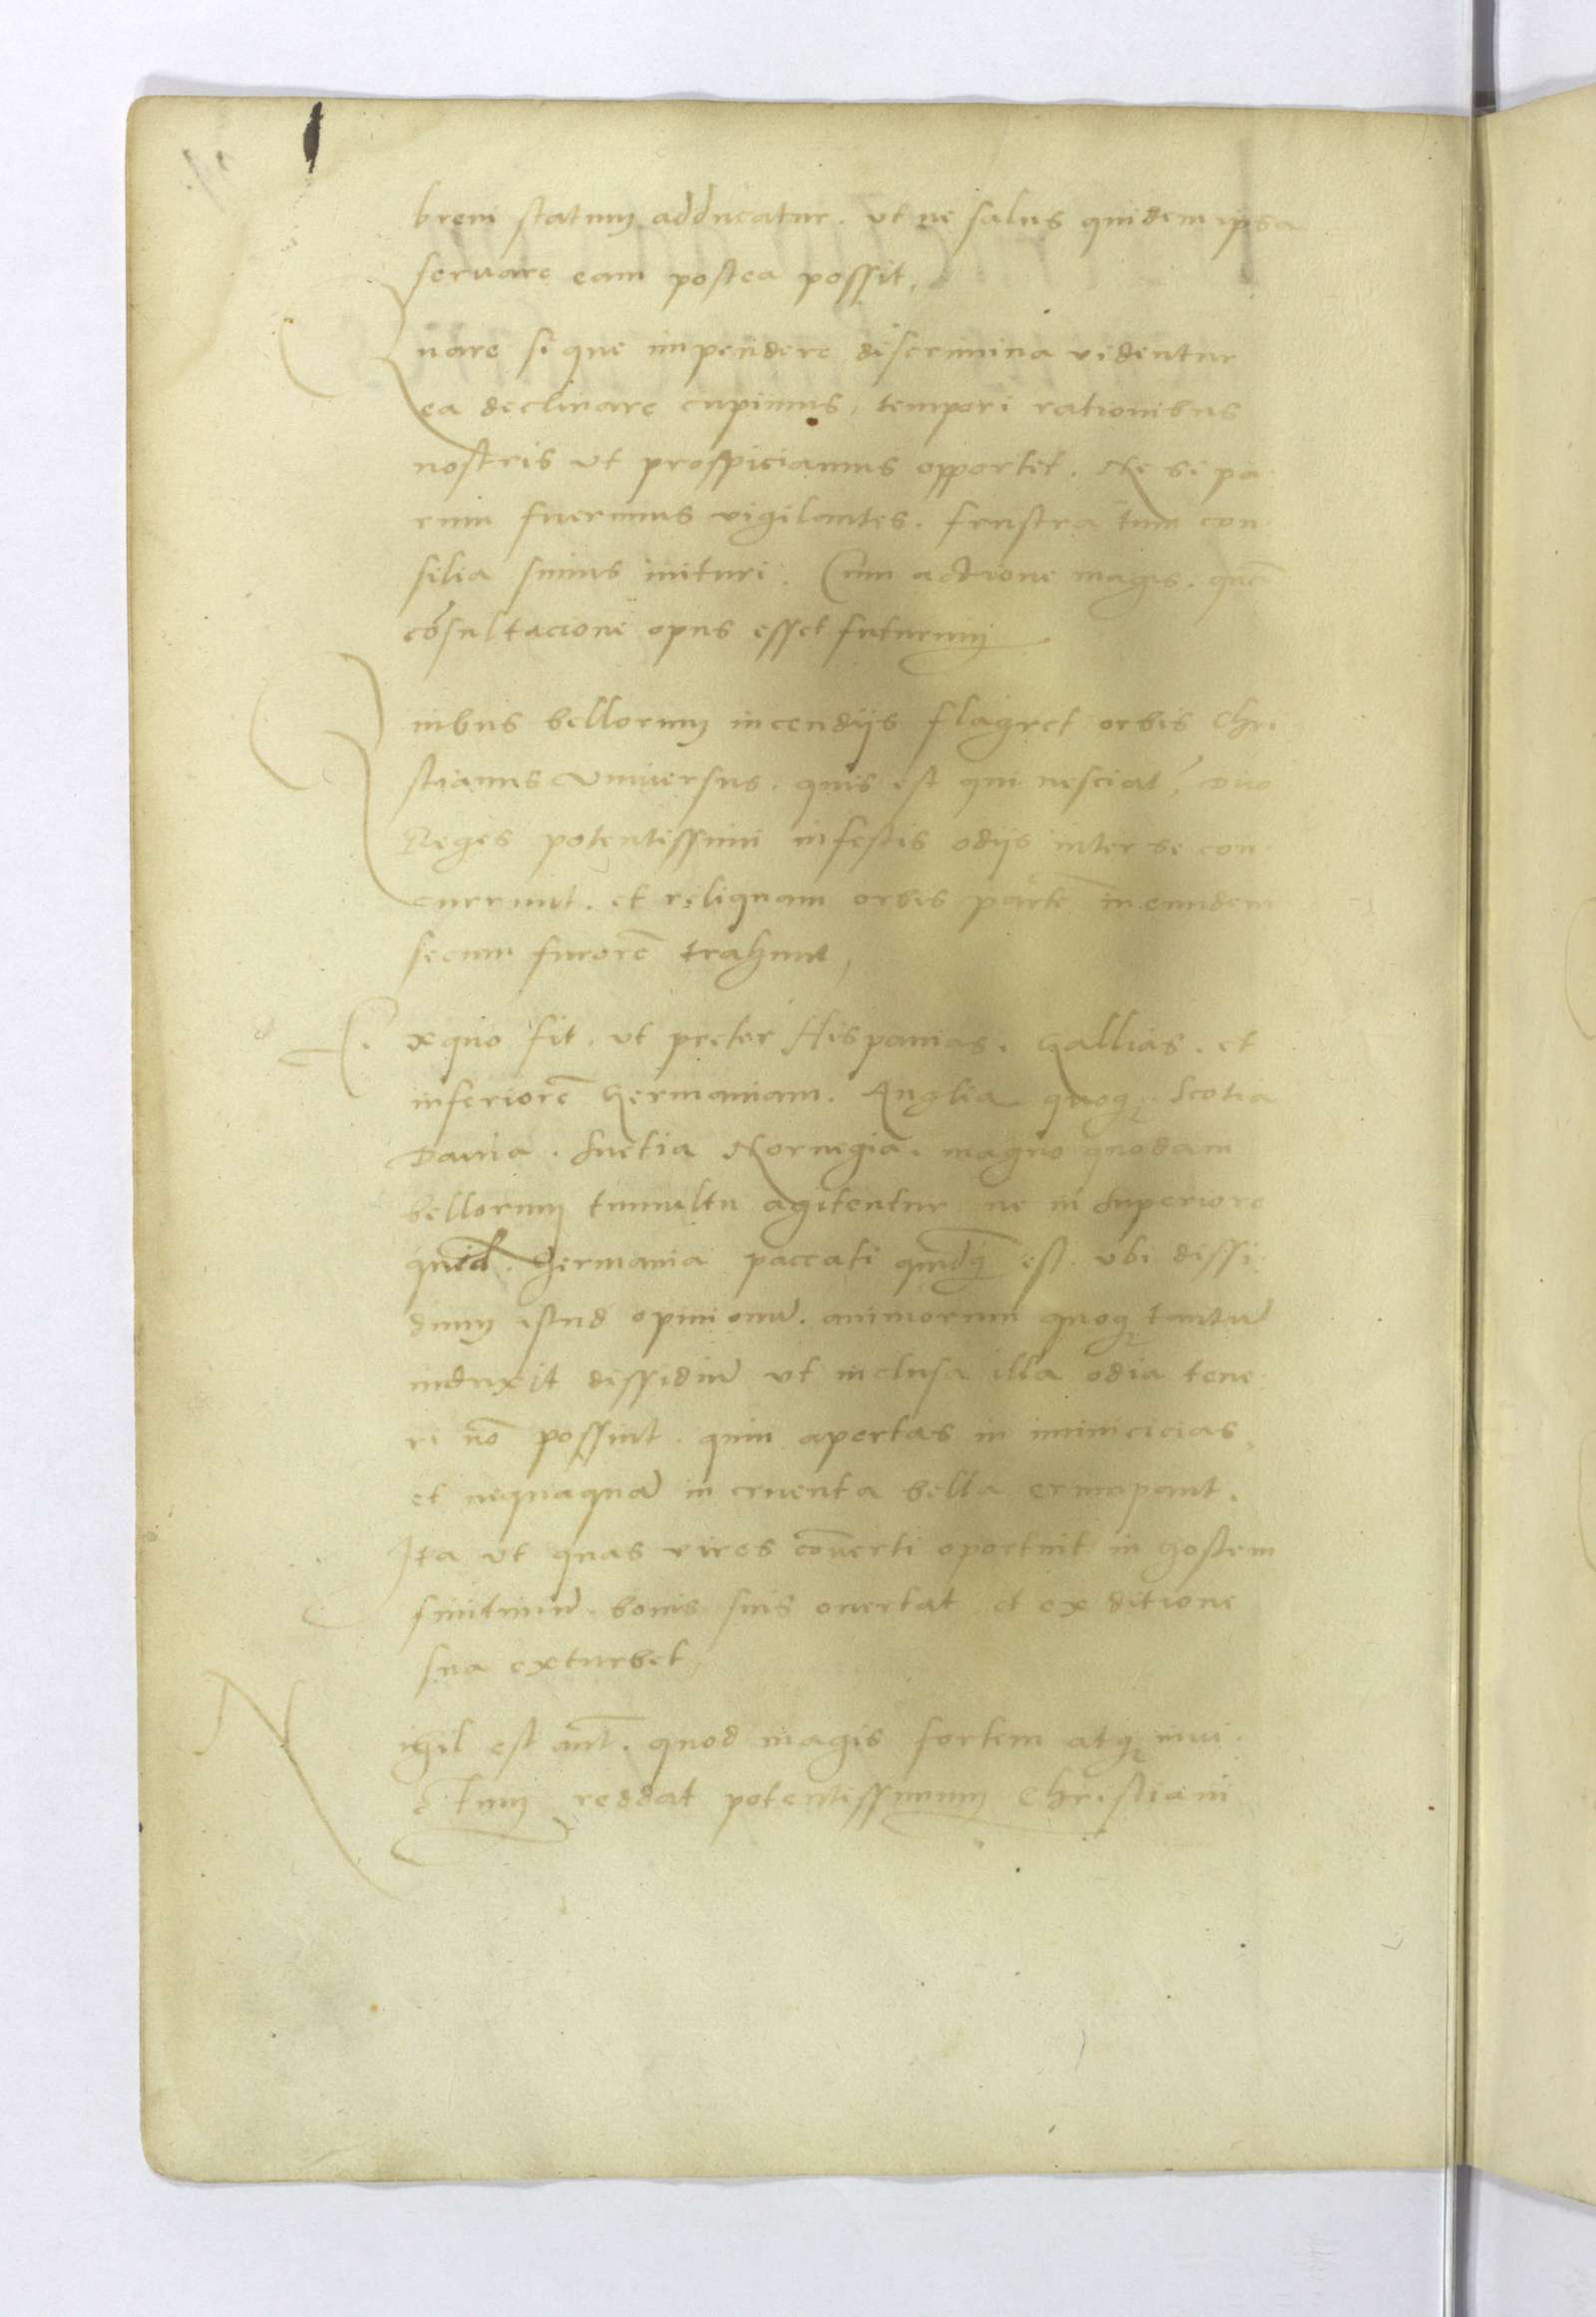 breui statum adducatur. vt ne salus quidem ipsa
seruare eam postea possit,
Quare si que impendere discrimina videntur
ea declinare cupimus, tempori rationibus
nostris vt prospiciamus opportet. Ne si pa
rum fuerimus vigilantes. frustra tum con
silia simus inituri. Cum actione magis. quã
cõsultacione opus esset futurum
Quibus bellorum incendijs flagret orbis Chri
stianus Vniuersus. quis est qui nesciat? Duo
Reges potentissimi infestis odijs inter se con
currunt. et reliquam orbis partẽ in eundem
secum furorẽ trahunt,
Ex quo fit. vt preter Hispanias. Gallias. et
inferiorẽ Germaniam. Anglia quoqȝ. Scotia
Dania. Suetia Noruegia. magno quodam
bellorum tumultu agitentur ne in Superiore
quid. Germania paccati quidqȝ est. vbi dissi
dium istud opinionũ. animorum quoqȝ tantũ
induxit dissidiũ vt inclusa illa odia tene
ri nõ possint. quin apertas in inimicicias,
et nequaquã in cruenta bella erumpant.
Ita vt quas vires cõuerti oportuit in hostem
finitimũ. bonis suis euertat et ex ditione
sua exturbet,
Nihil est aut̃. quod magis fortem atqȝ inui
ctum reddat potentissimum Christiani